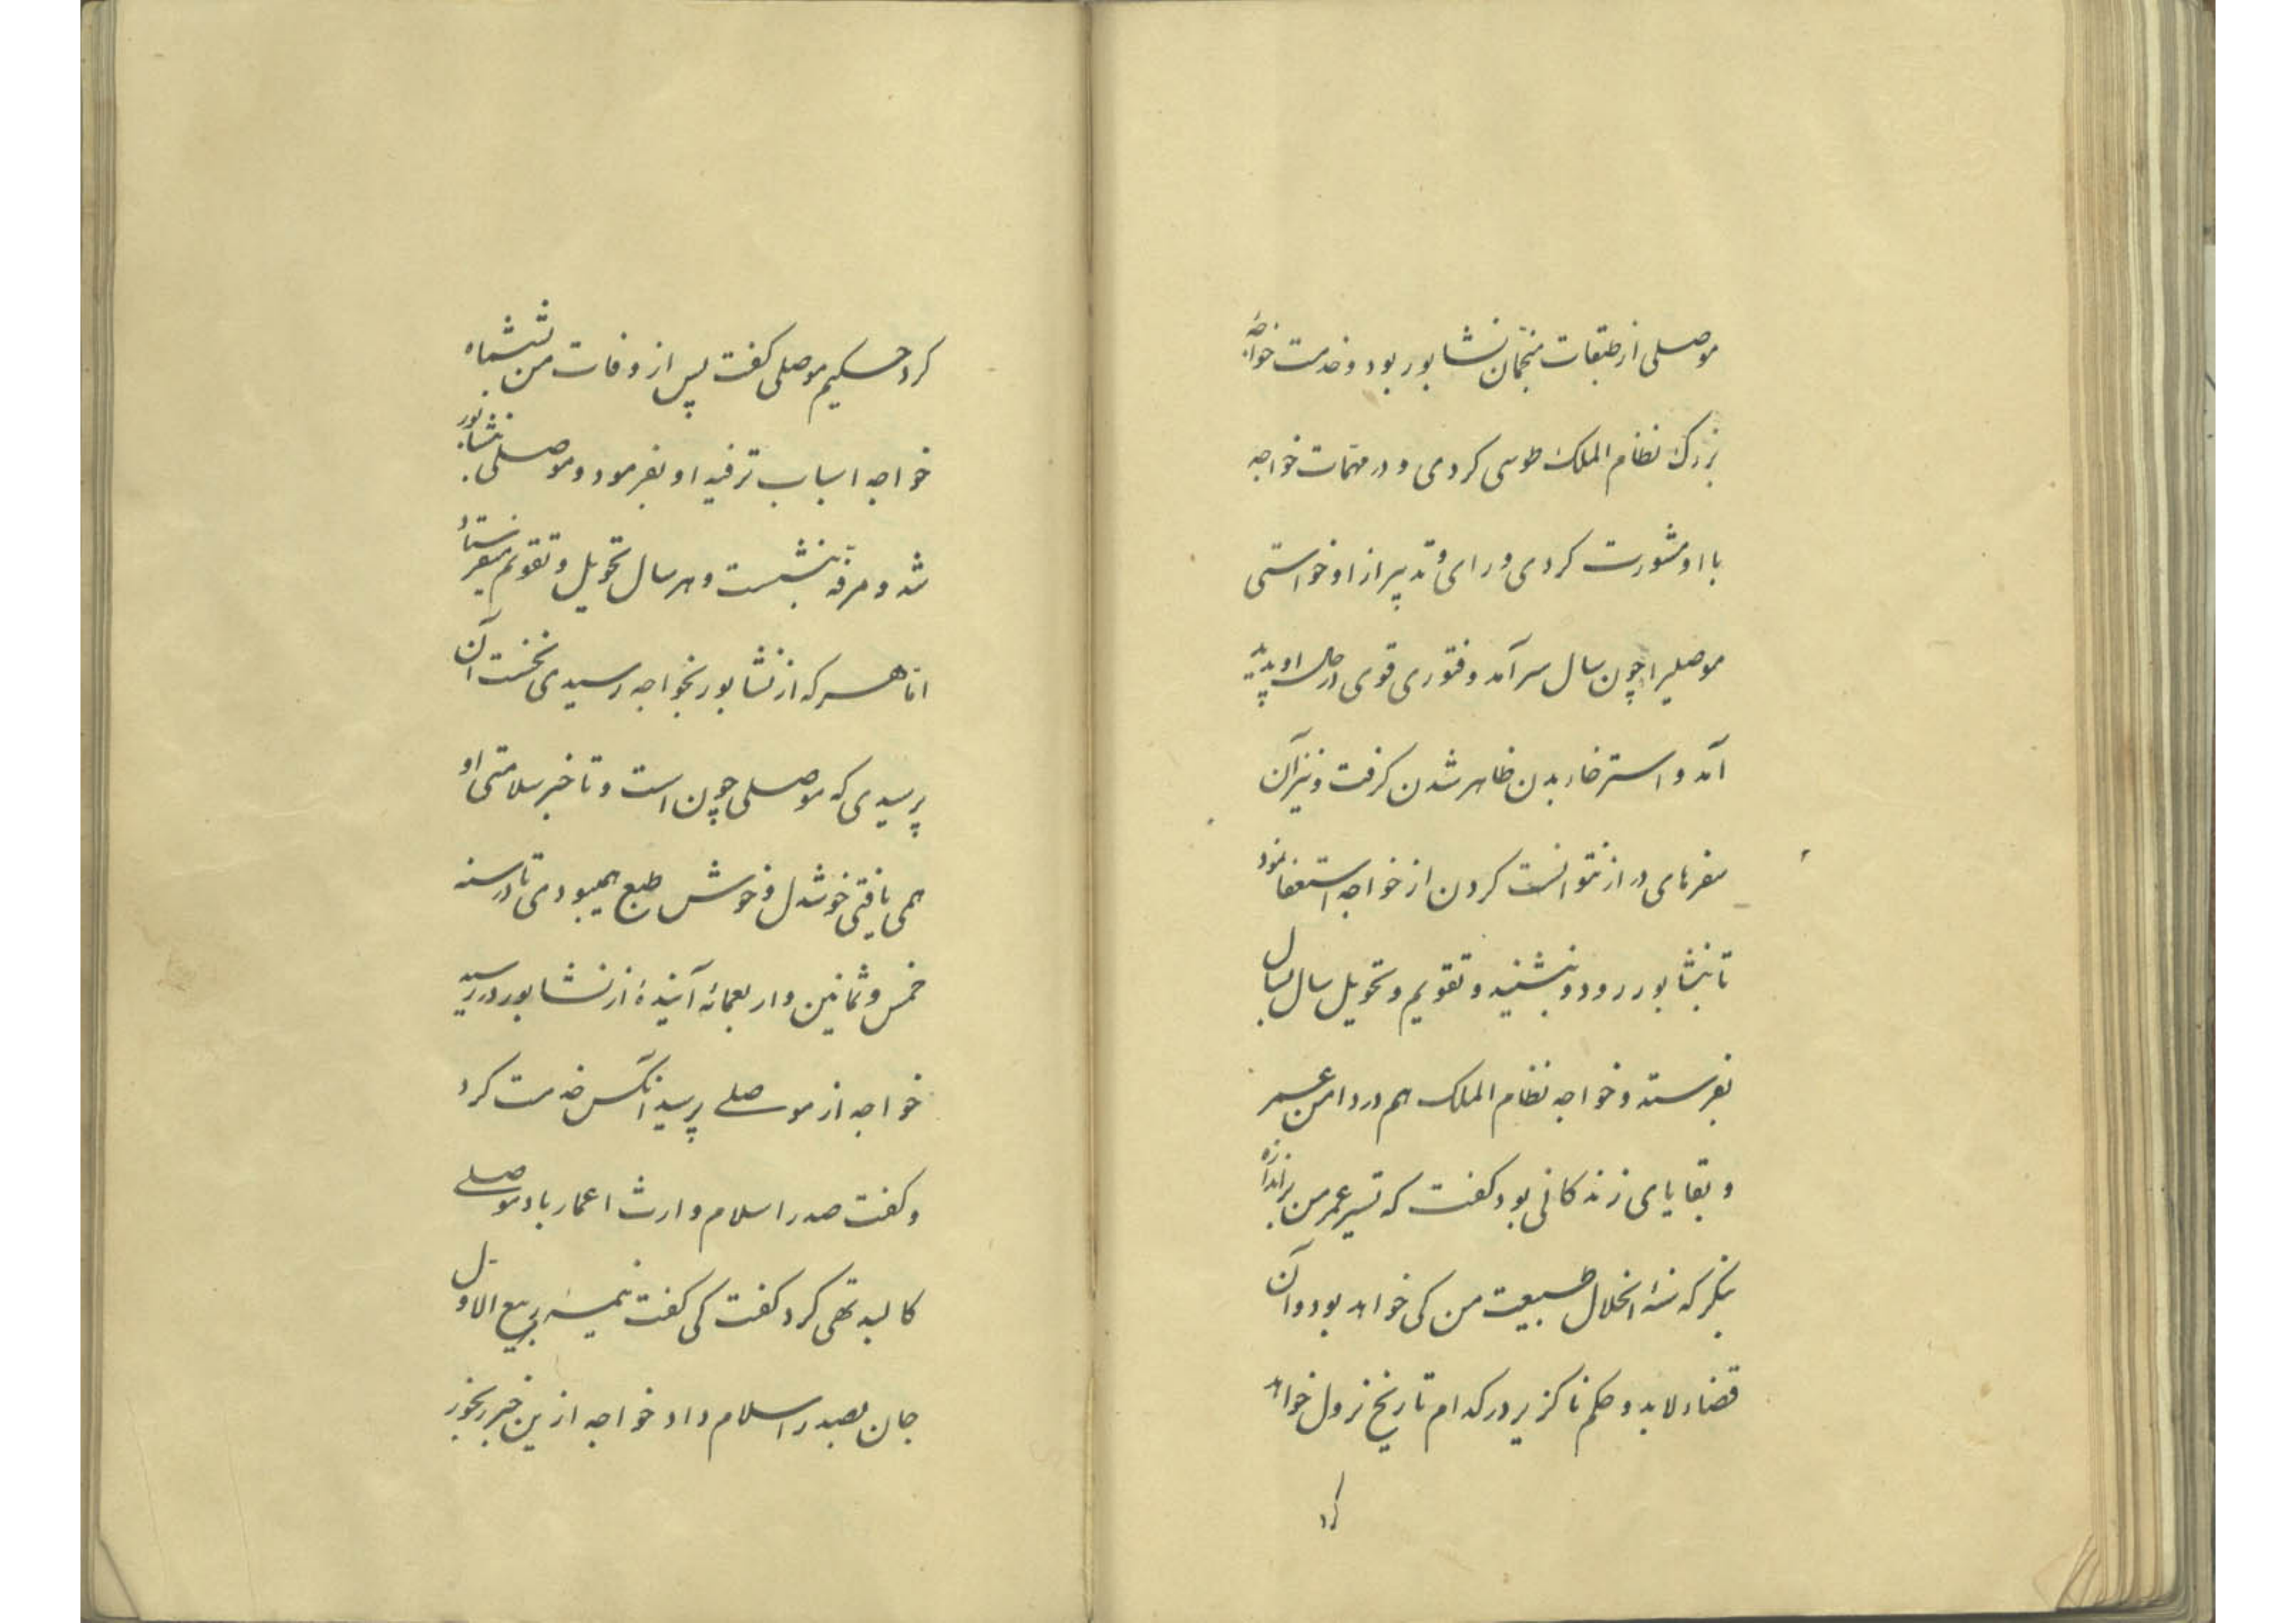 موصلی از طبقات منجّمان نشابور بود و خدمت خواجهٔ
بزرک نظام الملک طوسی کردی و در مهمّات خواجه
با او مشورت کردی و رای و تدبیر از او خواستی
موصلیرا چون سال سر آمد و فتوری قوی در حال او پدید
آمد و استرخاء بدن ظاهر شدن کرفت و نیز آن
سفرهای دراز نتوانست کردن از خواجه استعفا نمود
تا بنشابور رود و بنشیند و تقویم و تحویل سال بسال
بفرستد و خواجه نظام الملک هم در دامن عمر
و بقایای زندکانی بود کفت که تسیر عمر من براند از ره
بنکر که سنهٔ انحلال طبیعت من کی خواهد بود و آن
قضاء لابد و حکم ناکزیر در کدام تاریخ نزول خواهد
کرد
کرد حسکیم موصلی کفت پس از وفات من بششماه
خواجه اسباب ترفیه او بفرمود و موصلی بنشابور
شد و مرفّه بنشست و هر سال تحویل و تقویم میفرستاد
امّا هر که از نشابور بخواجه رسیدی نخست آن
پرسیدی که موصلی چون است و تا خبر سلامتی او
همی یافتی خوشدل و خوش طبع همیبودی تا در سنه
خمس و ثمانین و اربعمائه آیندهٔ از نشابور در رسید
خواجه از موصلی پرسید آنکس خدمت کرد
و کفت صدر اسلام وارث اعمار باد موصلی
کالبد تهی کرد کفت کی کفت نیمهٔ ربیع الاوّل
جان بصدر اسلام داد خواجه ازین خبر رنجور